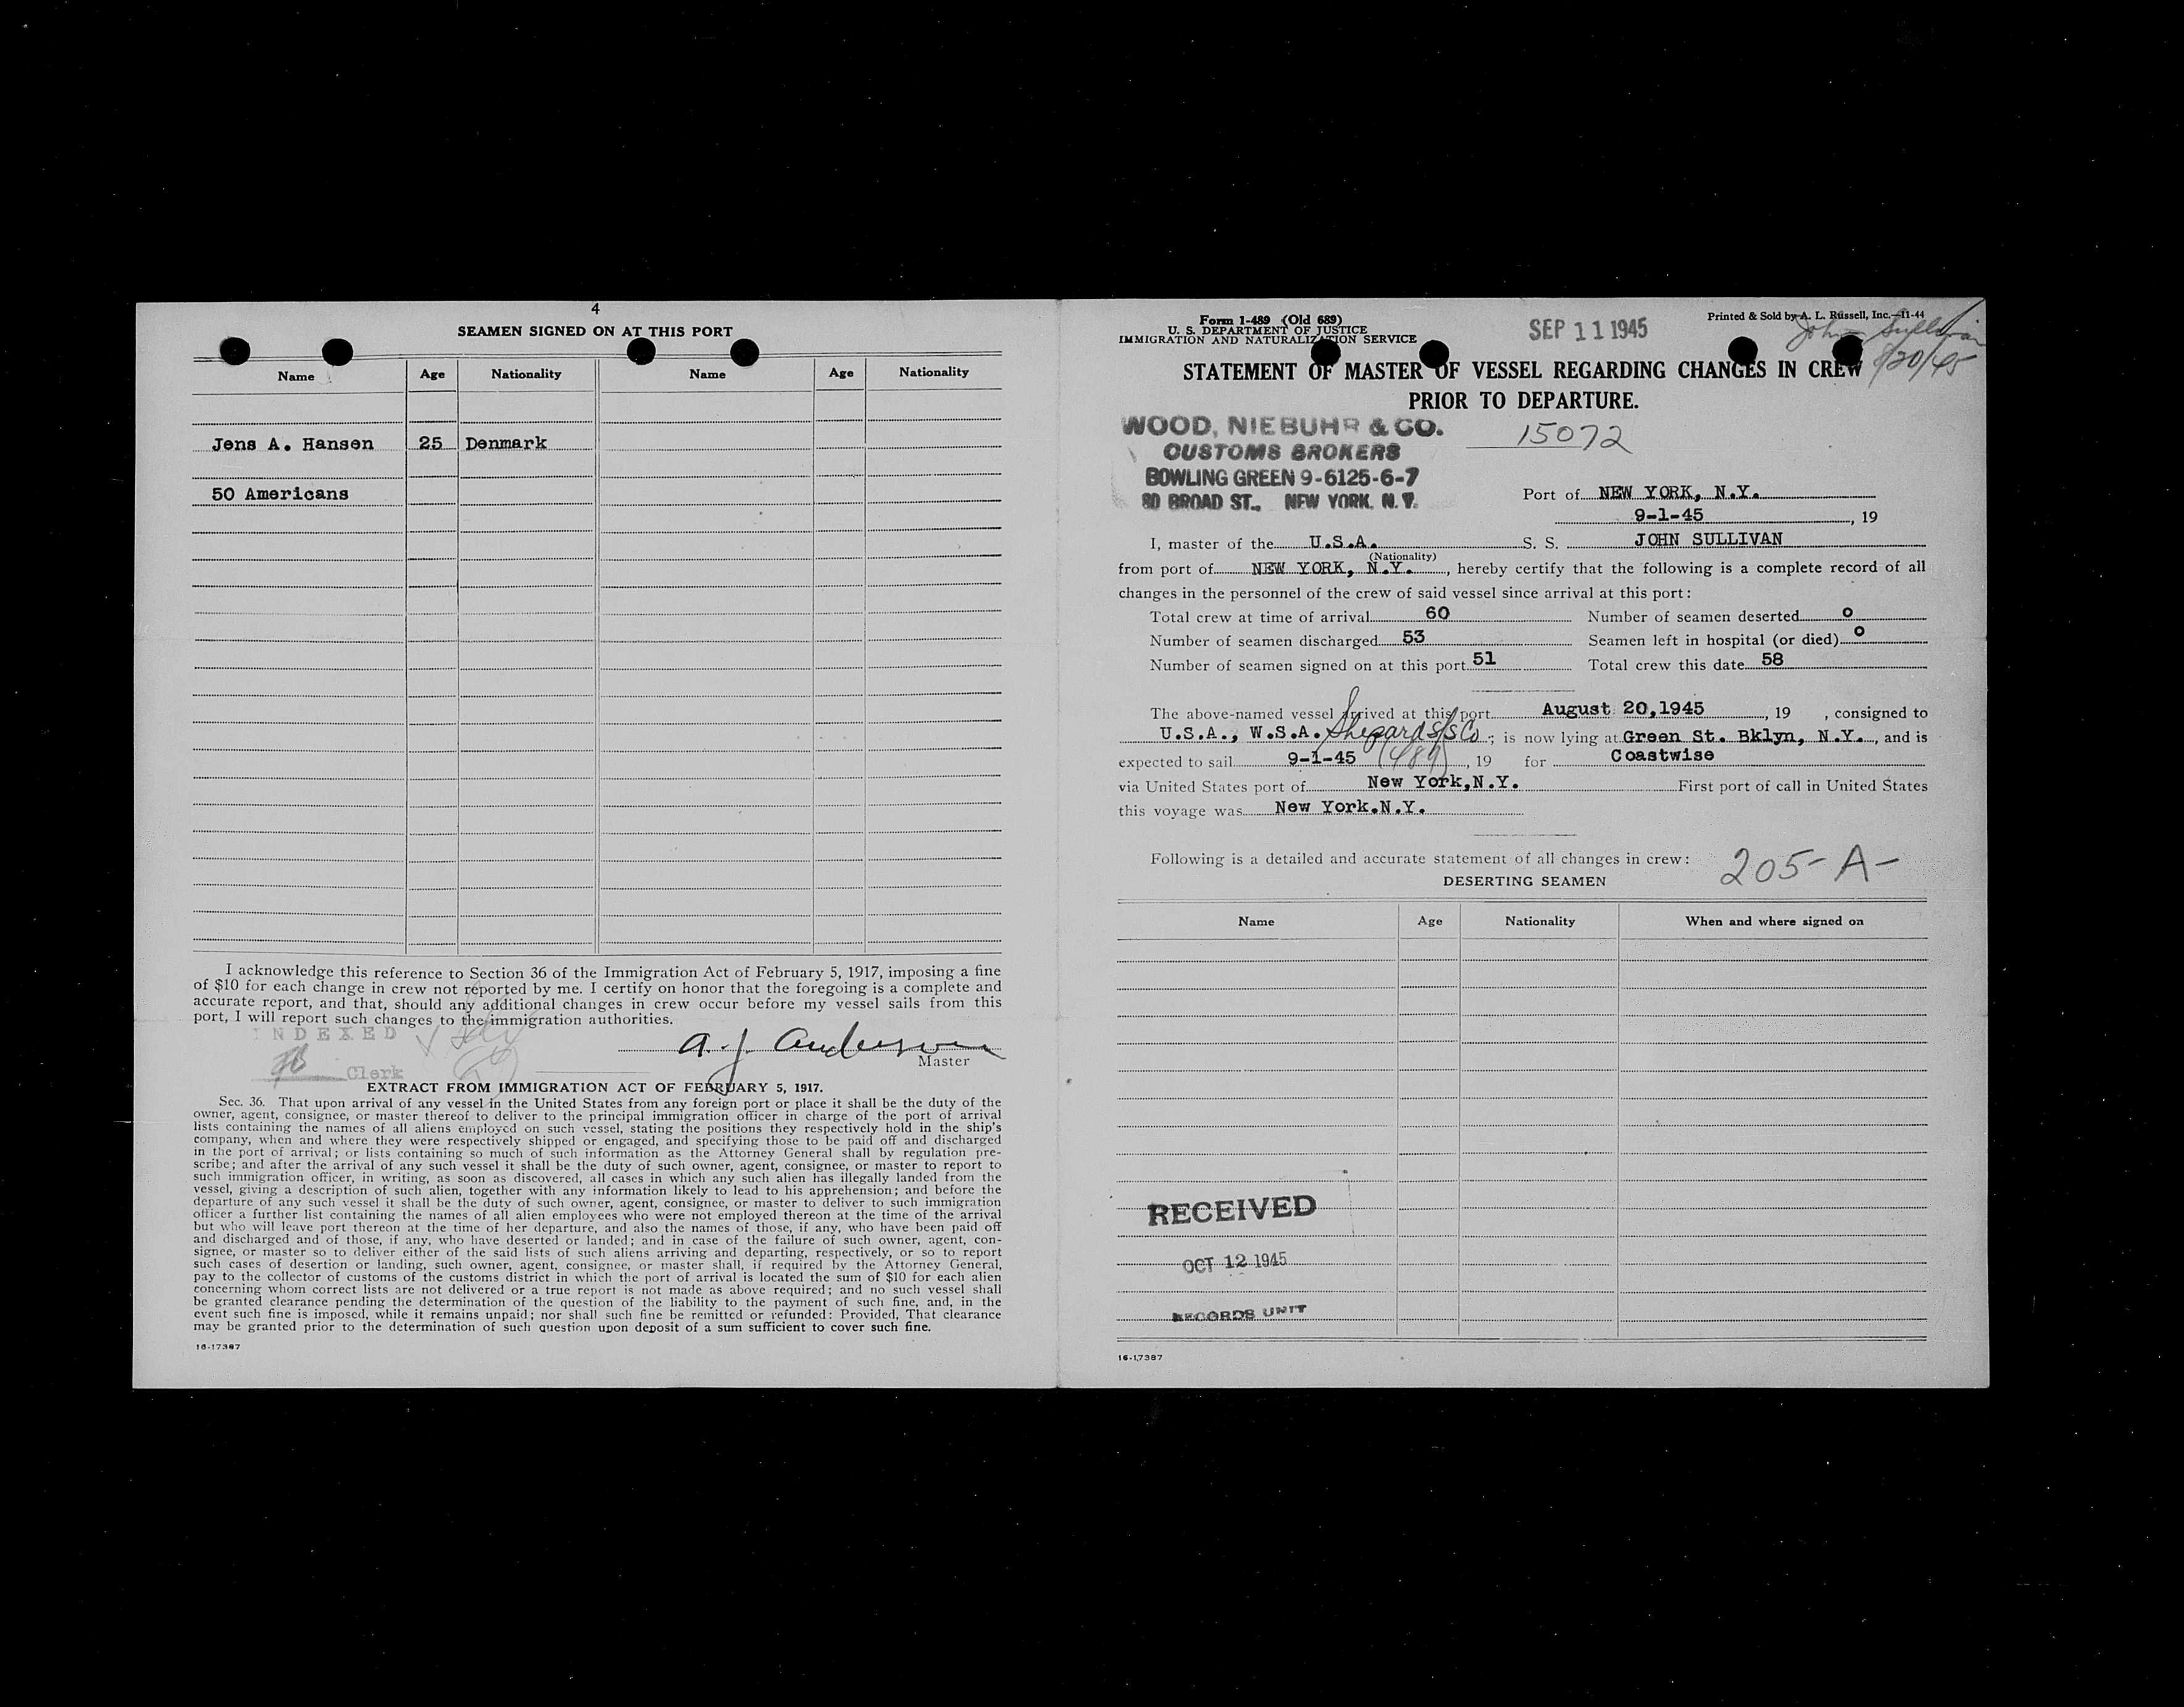 4
SEAMEN SIGNED ON AT THIS PORT
Name Age Nationality Name Age Nationality
Jens A. Hansen 25 Denmark
50 Americans
I acknowledge this reference to Section 36 of the Immigration Act of February 5, 1917, imposing a fine
of $10 for each change in crew not reported by me. I certify on honor that the foregoing is a complete and
accurate report, and that, should any additional changes in crew occur before my vessel sails from this
port, I will report such changes to the immigration authorities.
INDEXED
A. J. Anderson
Master
Clerk
EXTRACT FROM IMMIGRATION ACT OF FEBRUARY 5, 1917.
Sec. 36. That upon arrival of any vessel in the United States from any foreign port or place it shall be the duty of the
owner, agent, consignee, or master thereof to deliver to the principal immigration officer in charge of the port of arrival
lists containing the names of all aliens employed on such vessel, stating the positions they respectively hold in the ship's
company, when and where they were respectively shipped or engaged, and specifying those to be paid off and discharged
in the port of arrival; or lists containing so much of such information as the Attorney General shall by regulation pre-
scribe; and after the arrival of any such vessel it shall be the duty of such owner, agent, consignee, or master to report to
such immigration officer, in writing, as soon as discovered, all cases in which any such alien has illegally landed from the
vessel, giving a description of such alien, together with any information likely to lead to his apprehension; and before the
departure of any such vessel it shall be the duty of such owner, agent, consignee, or master to deliver to such immigration
officer a further list containing the names of all alien employees who were not employed thereon at the time of the arrival
but who will leave port thereon at the time of her departure, and also the names of those, if any, who have been paid off
and discharged and of those, if any, who have deserted or landed; and in case of the failure of such owner, agent, con-
signee, or master so to deliver either of the said lists of such aliens arriving and departing, respectively, or so to report
such cases of desertion or landing, such owner, agent, consignee, or master shall, if required by the Attorney General,
pay to the collector of customs of the customs district in which the port of arrival is located the sum of $10 for each alien
concerning whom correct lists are not delivered or a true report is not made as above required; and no such vessel shall
be granted clearance pending the determination of the question of the liability to the payment of such fine, and, in the
event such fine is imposed, while it remains unpaid; nor shall such fine be remitted or refunded: Provided, That clearance
may be granted prior to the determination of such question upon deposit of a sum sufficient to cover such fine.
16-17387
Form 1-489 (Old 689)
U. S. DEPARTMENT OF JUSTICE
IMMIGRATION AND NATURALIZATION SERVICE
SEP 11 1945
Printed & Sold by A. L. Russell, Inc.—11-44
John Sullivan
8/20/45
STATEMENT OF MASTER OF VESSEL REGARDING CHANGES IN CREW
PRIOR TO DEPARTURE.
WOOD, NIEBUHR & CO.
CUSTOMS BROKERS
BOWLING GREEN 9-6125-6-7
80 BROAD ST., NEW YORK, N.Y.
15072
Port of NEW YORK, N.Y.
9-1-45, 19
I, master of the U.S.A. S. S. JOHN SULLIVAN
(Nationality)
from port of NEW YORK, N.Y., hereby certify that the following is a complete record of all
changes in the personnel of the crew of said vessel since arrival at this port:
Total crew at time of arrival 60 Number of seamen deserted 0
Number of seamen discharged 53 Seamen left in hospital (or died) 0
Number of seamen signed on at this port 51 Total crew this date 58
The above-named vessel arrived at this port August 20,1945, 19 , consigned to
U.S.A., W.S.A. Shepard S/S Co; is now lying at Green St. Bklyn, N.Y., and is
expected to sail 9-1-45 (489), 19 for Coastwise
via United States port of New York,N.Y. First port of call in United States
this voyage was New York.N.Y.
Following is a detailed and accurate statement of all changes in crew:
205-A-
DESERTING SEAMEN
Name Age Nationality When and where signed on
RECEIVED
OCT 12 1945
RECORDS UNIT
16-17387